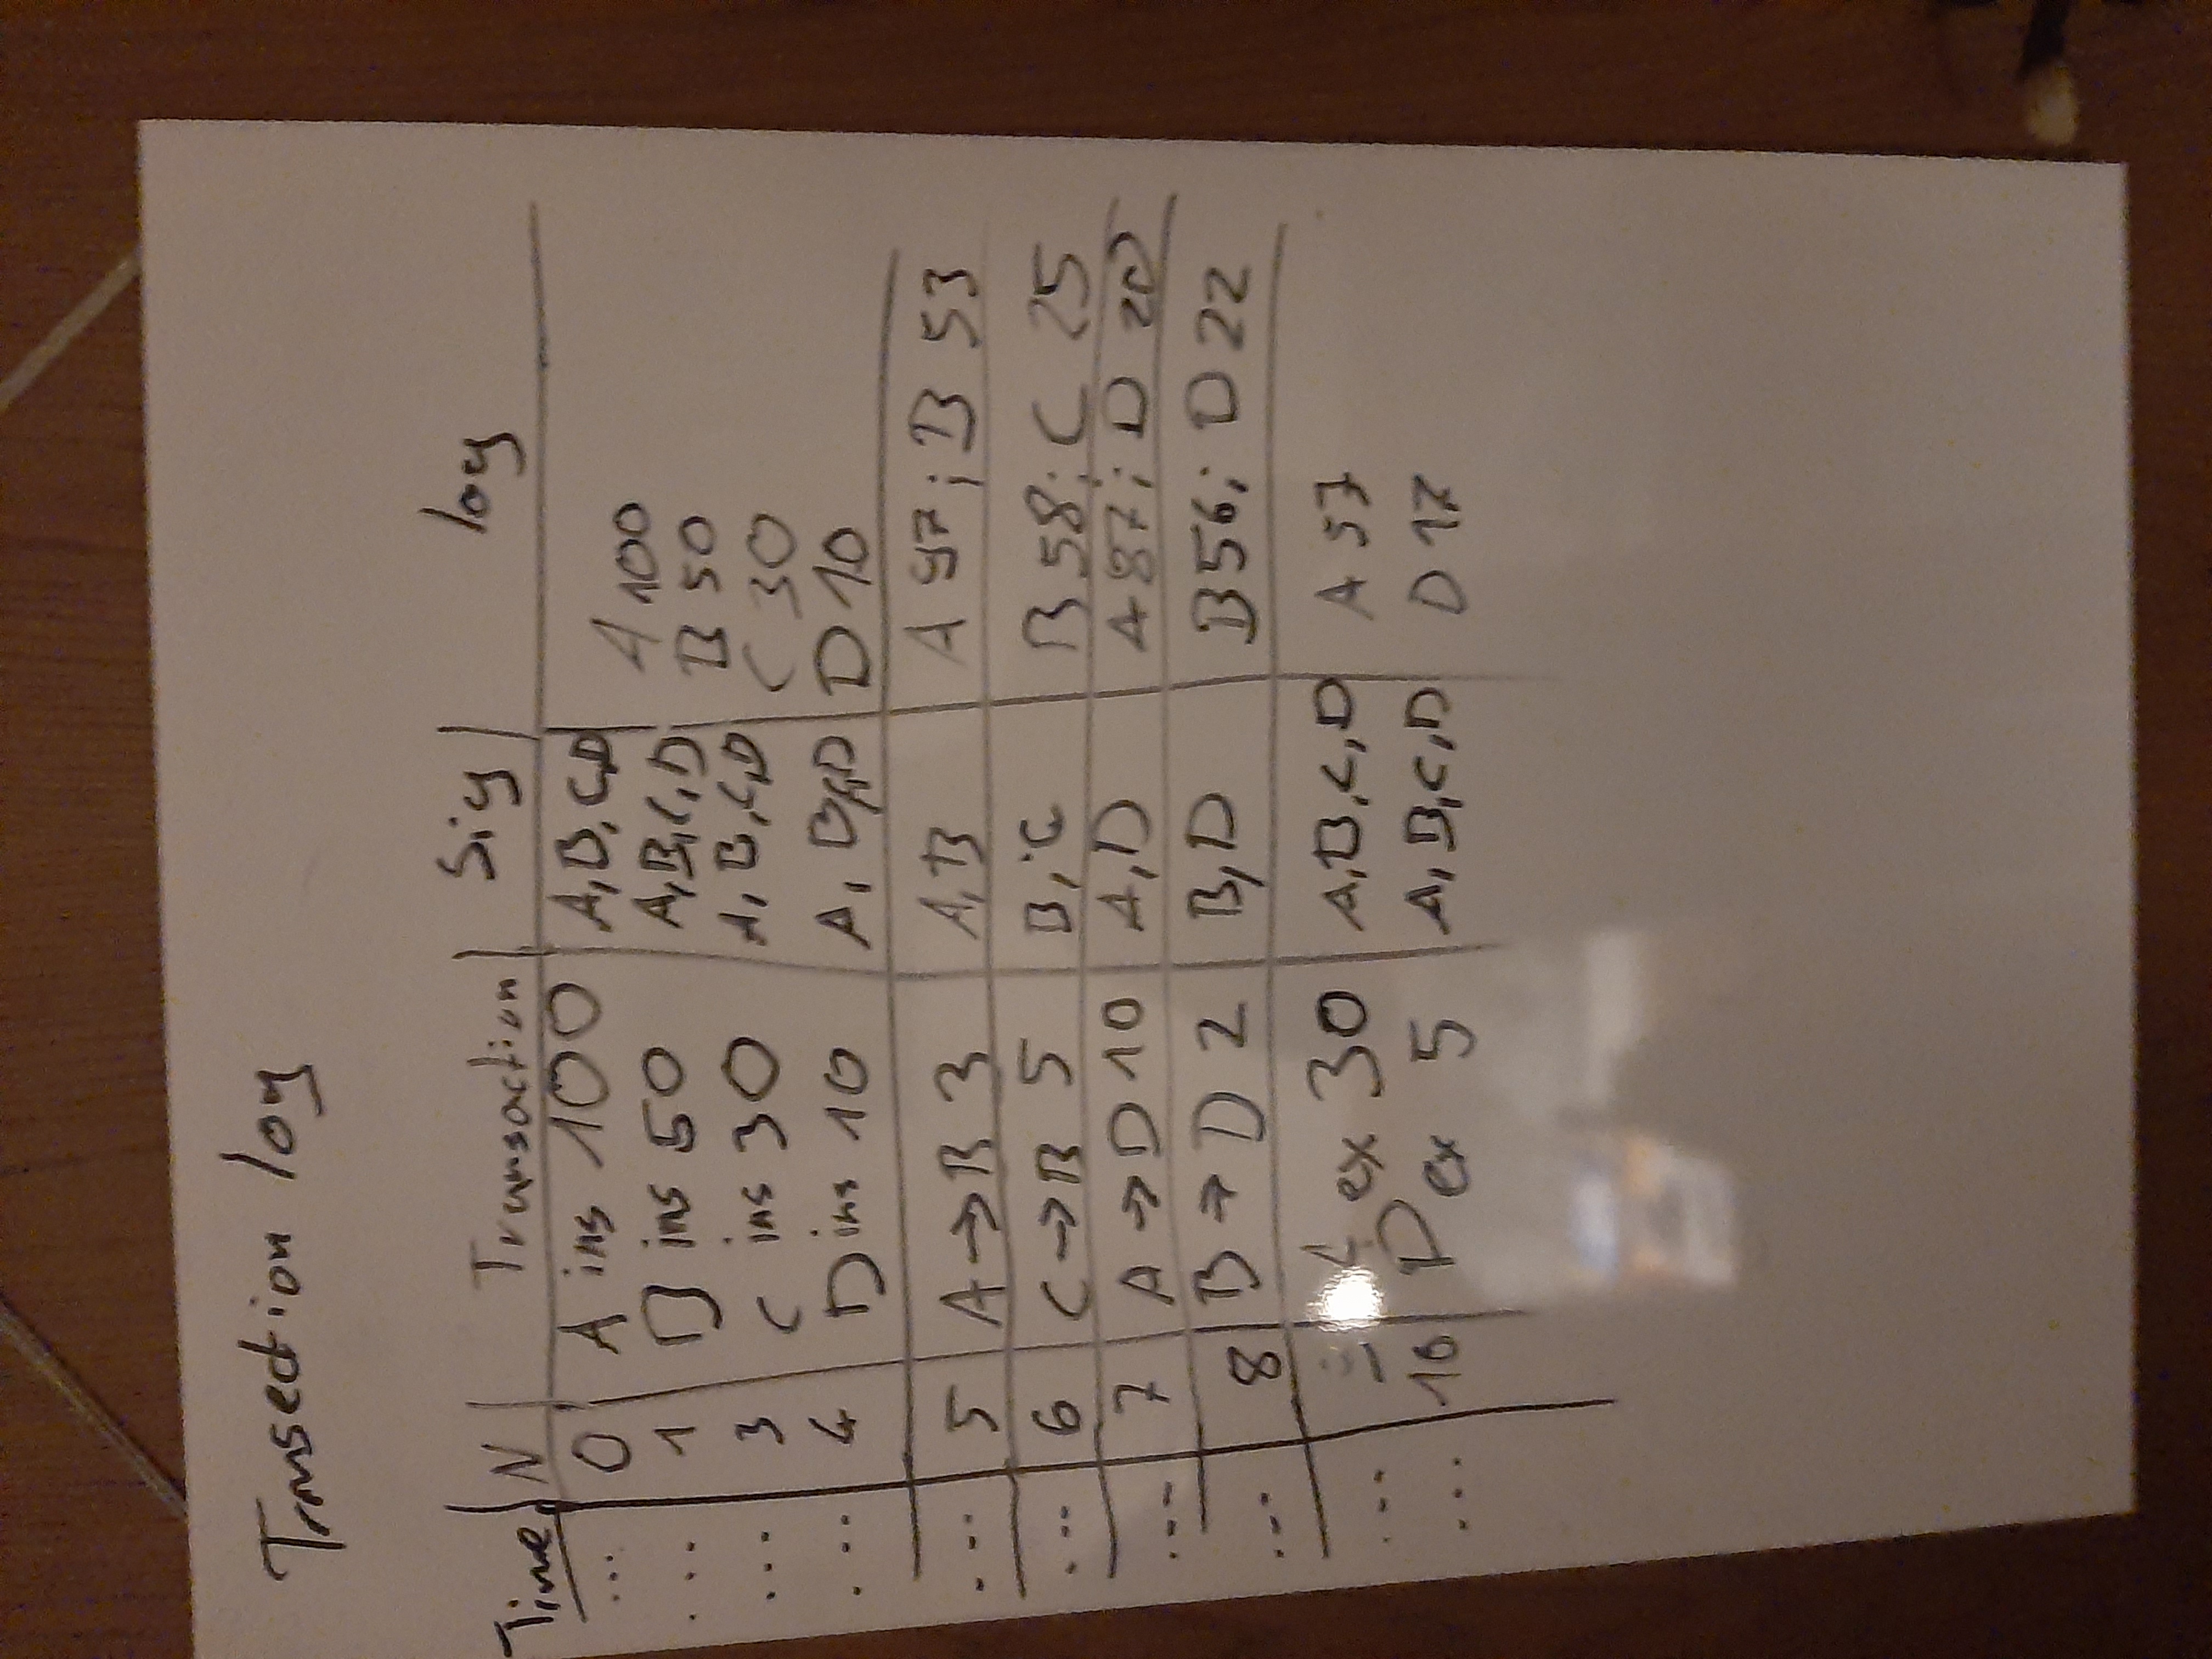 Transection log
Time N Transaction Sig log
... 0 A ins 100 A,B,C,D A 100
... 1 B ins 50 A,B,C,D B 50
... 3 C ins 30 A, B,C,D C 30
... 4 D ins 10 A, B,C,D D 10
... 5 A → B 3 A,B A 97; B 53
... 6 C → B 5 B,C B 58; C 25
... 7 A → D 10 A,D A 87; D 20
... 8 B → D 2 B,D B 56; D 22
... ex 30 A,B,C,D A 57
... 10 D ex 5 A,B,C,D D 17